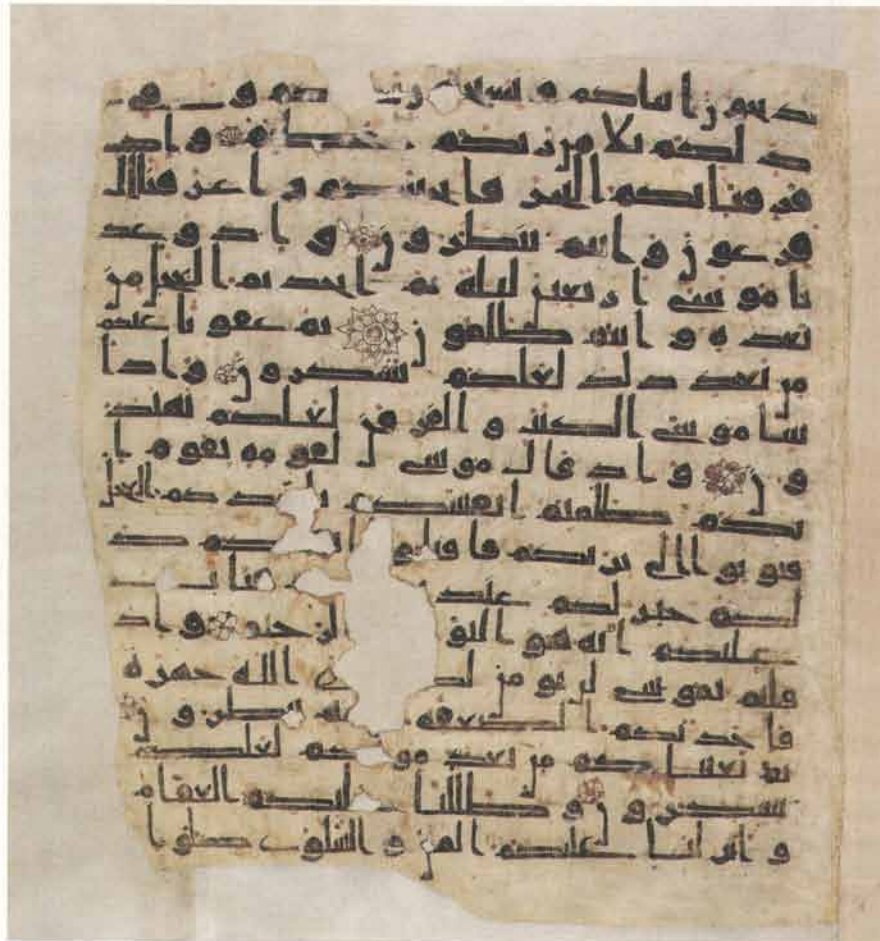 يذبحون ابناكم و يستحيون نساكم و فى
ذلكم بلا من ربكم عظيم و اذ
فرقنا بكم البحر فانجينكم و اغرقنا ال
فرعون و انتم تنظرون و اذ وعد
نا موسى اربعين ليلة ثم اتخذتم العجل من
بعده و انتم ظلمون ثم عفونا عنكم
من بعد ذلك لعلكم تشكرون و اذ ا
تينا موسى الكتب و الفرقن لعلكم تهتد
ون و اذ قال موسى لقومه يقوم ا
نكم ظلمتم انفسكم باتخاذكم العجل
فتوبوا الى باريكم فاقتلوا انفسكم ذ
لكم خير لكم عند فتاب
عليكم انه هو التو الرحيم و اذ
قلتم يموسى لن نومن لك الله جهرة
فاخذتكم الصعقة تنظرون
ثم بعثناكم من بعد موتكم لعلكم
تشكرون و ظللنا عليكم الغمام
و انزلنا عليكم المن و السلوى كلوا